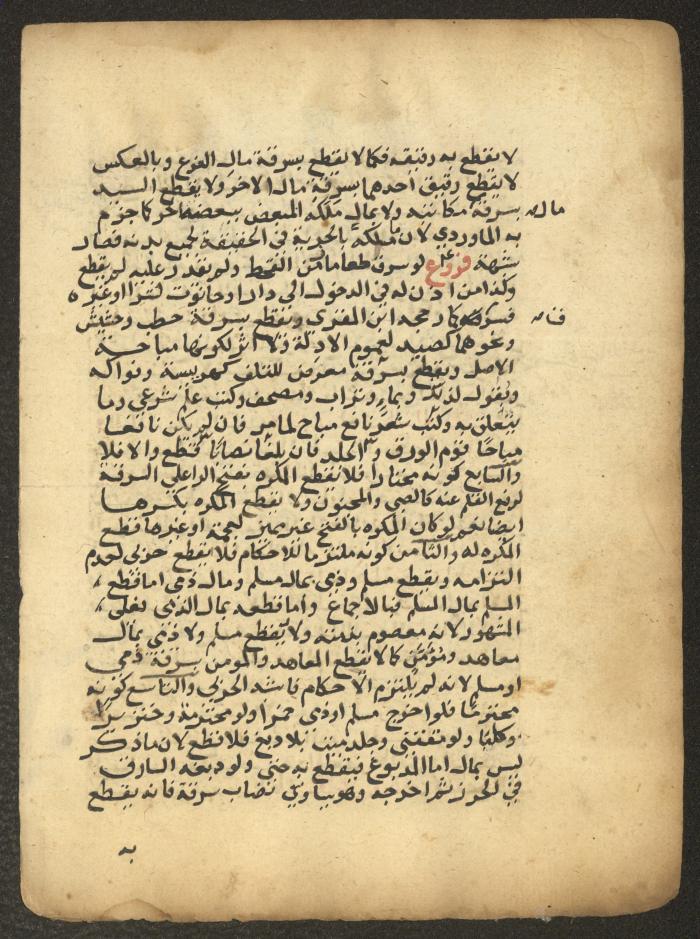 لا يقطع به رقيقه فكما لا يقطع بسرقة مال الفرع وبالعكس
لا يقطع رقيق احدهما بسرقة مال الاخر ولا يقطع السيد
بسرقة مكاتبه ولا بمال ملكه المبعض ببعضه الحر كما جزم
مال
به الماوردي لان ما ملكه بالحرية في الحقيقة لجميع بدنه فصار
شبهة فروع لو سرق طعاما من القحط ولم يقدر عليه لم يقطع
وكذا من اذن له في الدخول الى دار او حانوت لشرا او غيره
فسرق كما رجحه ابن المقري ويقطع بسرقة حطب وحشيش
ونحوهما كصيد لعموم الادلة ولا اثر لكونها مباحة
الاصل ويقطع بسرقة معرض للتلف كهريسة وفواكه
وبقول لذلك وبماء وتراب ومصحف وكتب علم شرعي وما
يتعلق به وكتب شعر نافع مباح لما مر فان لم يكن نافعا
مباحا قوم الورق والجلد فان بلغا نصابا قطع والا فلا
والسابع كونه مختارا فلا يقطع المكره بفتح الرا على السرقة
لرفع القلم عنه كالصبي والمجنون ولا يقطع المكره بكسرها
ايضا نعم لو كان المكره بالفتح غير مميز لعجمة او غيرها قطع
المكره له والثامن كونه ملتزما للاحكام فلا يقطع حربي لعدم
التزامه ويقطع مسلم وذمي بمال مسلم ومال ذمي اما قطع
المسلم بمال المسلم فبالاجماع واما قطعه بمال الذمي فعلى
المشهور لانه معصوم بذمته ولا يقطع مسلم ولا ذمي بمال
معاهد ومؤمن كما لا يقطع المعاهد والمومن بسرقة ذمي
او مسلم لانه لم يلتزم الاحكام فاشبه الحربي والتاسع كونه
محترما فلو اخرج مسلم او ذمي خمرا ولو محترمة وخنزيرا
وكلبا ولو مقتنى وجلد ميت بلا دبغ فلا قطع لان ما ذكر
ليس بمال اما المدبوغ فيقطع به حتى ولو دبغه السارق
في الحرز ثم اخرجه وهو يساوي نصاب سرقة فانه يقطع
به